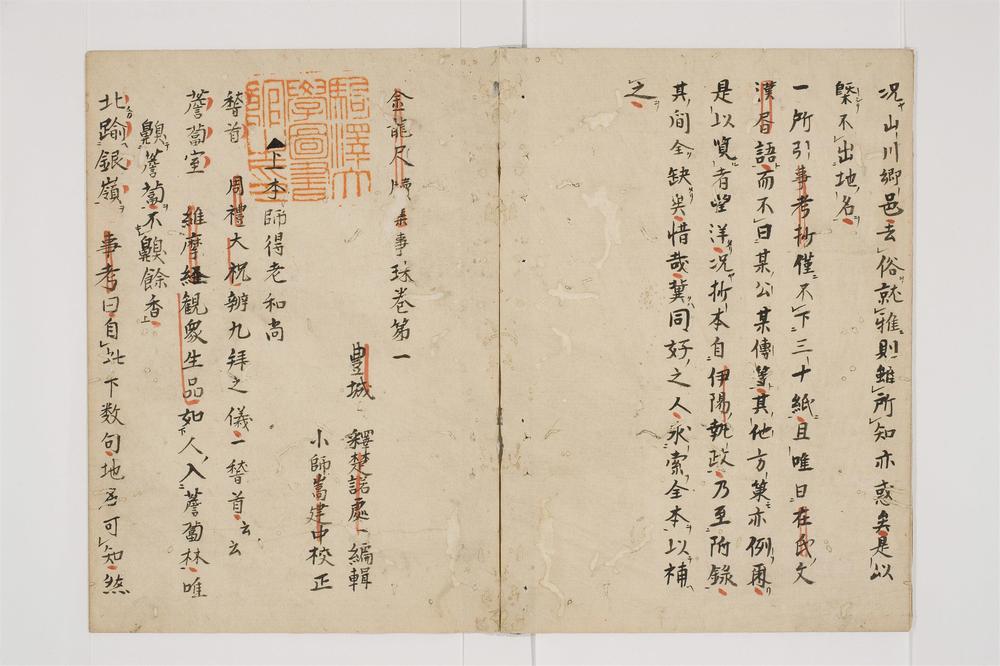 況ヤ山川郷邑去俗就雅則雖所知亦惑矣是以
槩不出地名
一所引事考抄僅不下三十紙且唯曰在氏文
漢唇語而不曰某公某傳等其他方策亦例爾
是以覧者望洋況抄本自伊陽執政乃至附錄
其間全缺矣惜哉冀同好之人永索全本以補
之
金龍尺牘集事珠卷第一
豊城 釋楚諾處一編輯
小師嵩建中校正
上本師得老和尚
駒澤大學圖書館之印
稽首 周禮大祝辨九拜之儀一稽首云云
薝蔔室 維摩経觀衆生品如人入薝蔔林唯
齅薝蔔不齅餘香
北踰銀嶺 事考曰自此下数句地名可知然